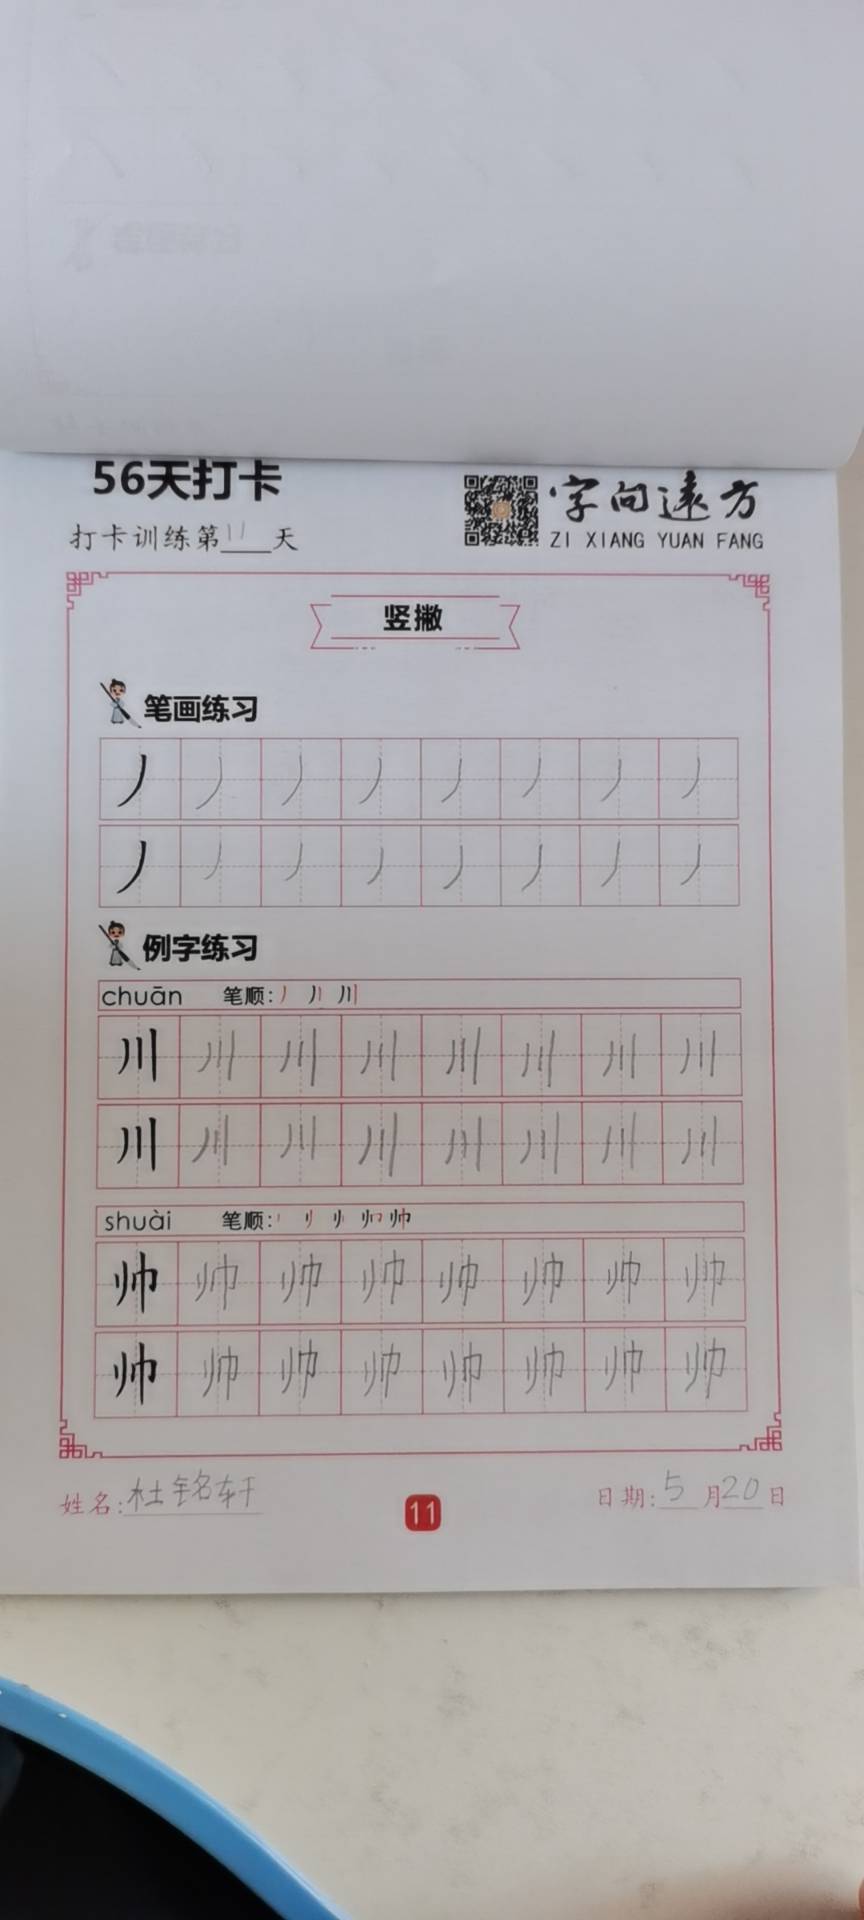 56天打卡
字向远方
打卡训练第11天
ZI XIANG YUAN FANG
竖撇
笔画练习
丿 丿 丿 丿 丿 丿 丿 丿
丿 丿 丿 丿 丿 丿 丿 丿
例字练习
chuān 笔顺: 丿 丿丨 川
川 川 川 川 川 川 川 川
川 川 川 川 川 川 川 川
shuài 笔顺: 帅
帅 帅 帅 帅 帅 帅 帅 帅
帅 帅 帅 帅 帅 帅 帅 帅
姓名:杜铭轩
11
日期:5月20日